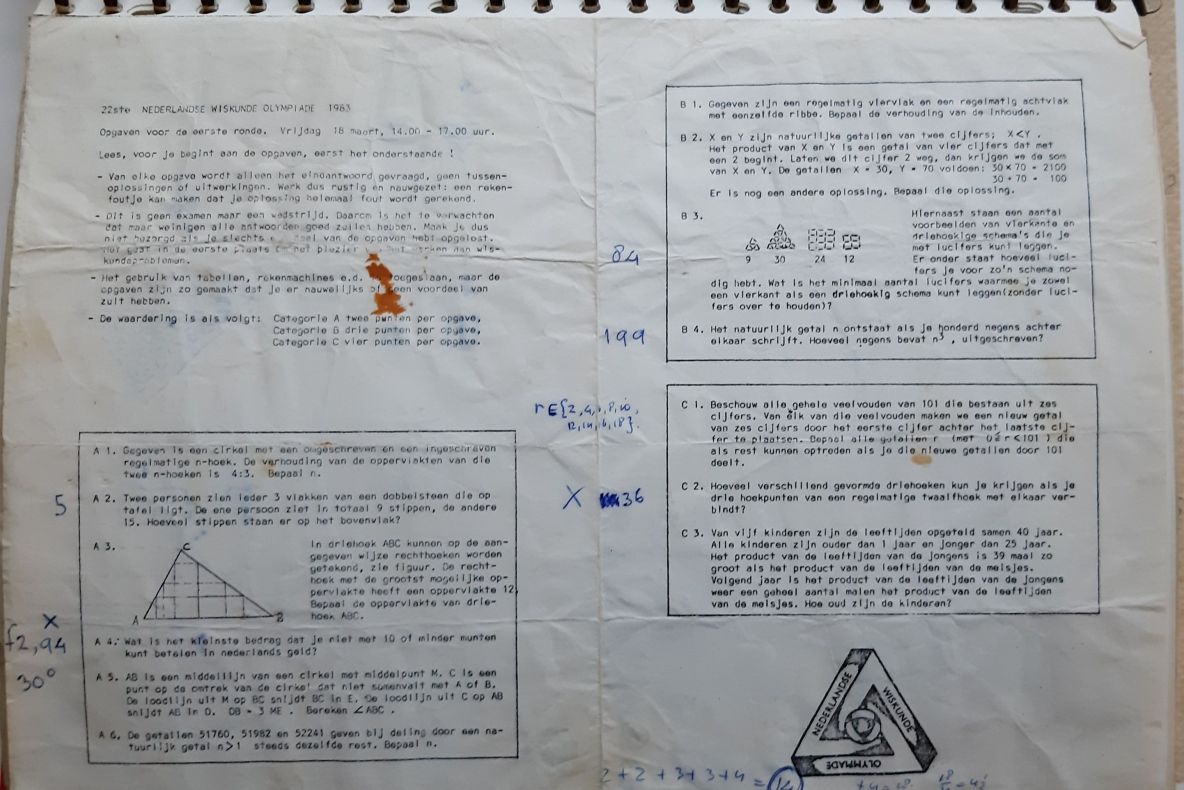 22ste NEDERLANDSE WISKUNDE OLYMPIADE 1983
Opgaven voor de eerste ronde. Vrijdag 18 maart, 14.00 - 17.00 uur.
Lees, voor je begint aan de opgaven, eerst het onderstaande !
- Van elke opgave wordt alleen het eindantwoord gevraagd, geen tussen-
oplossingen of uitwerkingen. Werk dus rustig en nauwgezet: een reken-
foutje kan maken dat je oplossing helemaal fout wordt gerekend.
- Dit is geen examen maar een wedstrijd. Daarom is het te verwachten
dat maar weinigen alle antwoorden goed zullen hebben. Maak je dus
niet bezorgd als je slechts van de opgaven hebt opgelost.
Het gaat in de eerste plaats om het plezier het werken aan wis-
kundeproblemen.
- Het gebruik van tabellen, rekenmachines e.d. toegestaan, maar de
opgaven zijn zo gemaakt dat je er nauwelijks of geen voordeel van
zult hebben.
- De waardering is als volgt: Categorie A twee punten per opgave,
Categorie B drie punten per opgave,
Categorie C vier punten per opgave.
A 1. Gegeven is een cirkel met een omgeschreven en een ingeschreven
regelmatige n-hoek. De verhouding van de oppervlakten van die
twee n-hoeken is 4:3. Bepaal n.
5
A 2. Twee personen zien ieder 3 vlakken van een dobbelsteen die op
tafel ligt. De ene persoon ziet in totaal 9 stippen, de andere
15. Hoeveel stippen staan er op het bovenvlak?
A 3.
C
A
B
In driehoek ABC kunnen op de aan-
gegeven wijze rechthoeken worden
getekend, zie figuur. De recht-
hoek met de grootst mogelijke op-
pervlakte heeft een oppervlakte 12.
Bepaal de oppervlakte van drie-
hoek ABC.
x
f2,94
A 4. Wat is het kleinste bedrag dat je niet met 10 of minder munten
kunt betalen in nederlands geld?
30°
A 5. AB is een middellijn van een cirkel met middelpunt M. C is een
punt op de omtrek van de cirkel dat niet samenvalt met A of B.
De loodlijn uit M op BC snijdt BC in E. De loodlijn uit C op AB
snijdt AB in D. DB = 3 ME . Bereken ∠ABC .
A 6. De getallen 51760, 51982 en 52241 geven bij deling door een na-
tuurlijk getal n>1 steeds dezelfde rest. Bepaal n.
B 1. Gegeven zijn een regelmatig viervlak en een regelmatig achtvlak
met eenzelfde ribbe. Bepaal de verhouding van de inhouden.
B 2. X en Y zijn natuurlijke getallen van twee cijfers; X<Y .
Het product van X en Y is een getal van vier cijfers dat met
een 2 begint. Laten we dit cijfer 2 weg, dan krijgen we de som
van X en Y. De getallen X = 30, Y = 70 voldoen: 30×70 = 2100
30+70 = 100
Er is nog een andere oplossing. Bepaal die oplossing.
84
B 3.
9 30 24 12
Hiernaast staan een aantal
voorbeelden van vierkante en
driehoekige schema's die je
met lucifers kunt leggen.
Er onder staat hoeveel luci-
fers je voor zo'n schema no-
dig hebt. Wat is het minimaal aantal lucifers waarmee je zowel
een vierkant als een driehoekig schema kunt leggen(zonder luci-
fers over te houden)?
199
B 4. Het natuurlijk getal n ontstaat als je honderd negens achter
elkaar schrijft. Hoeveel negens bevat n³ , uitgeschreven?
r∈{2,4,6,8,10,
12,14,16,18}.
C 1. Beschouw alle gehele veelvouden van 101 die bestaan uit zes
cijfers. Van elk van die veelvouden maken we een nieuw getal
van zes cijfers door het eerste cijfer achter het laatste cij-
fer te plaatsen. Bepaal alle getallen r (met 0≤r<101 ) die
als rest kunnen optreden als je die nieuwe getallen door 101
deelt.
X 36
C 2. Hoeveel verschillend gevormde driehoeken kun je krijgen als je
drie hoekpunten van een regelmatige twaalfhoek met elkaar ver-
bindt?
C 3. Van vijf kinderen zijn de leeftijden opgeteld samen 40 jaar.
Alle kinderen zijn ouder dan 1 jaar en jonger dan 25 jaar.
Het product van de leeftijden van de jongens is 39 maal zo
groot als het product van de leeftijden van de meisjes.
Volgend jaar is het product van de leeftijden van de jongens
weer een geheel aantal malen het product van de leeftijden
van de meisjes. Hoe oud zijn de kinderen?
NEDERLANDSE
WISKUNDE
OLYMPIADE
2+2+3+3+4=14